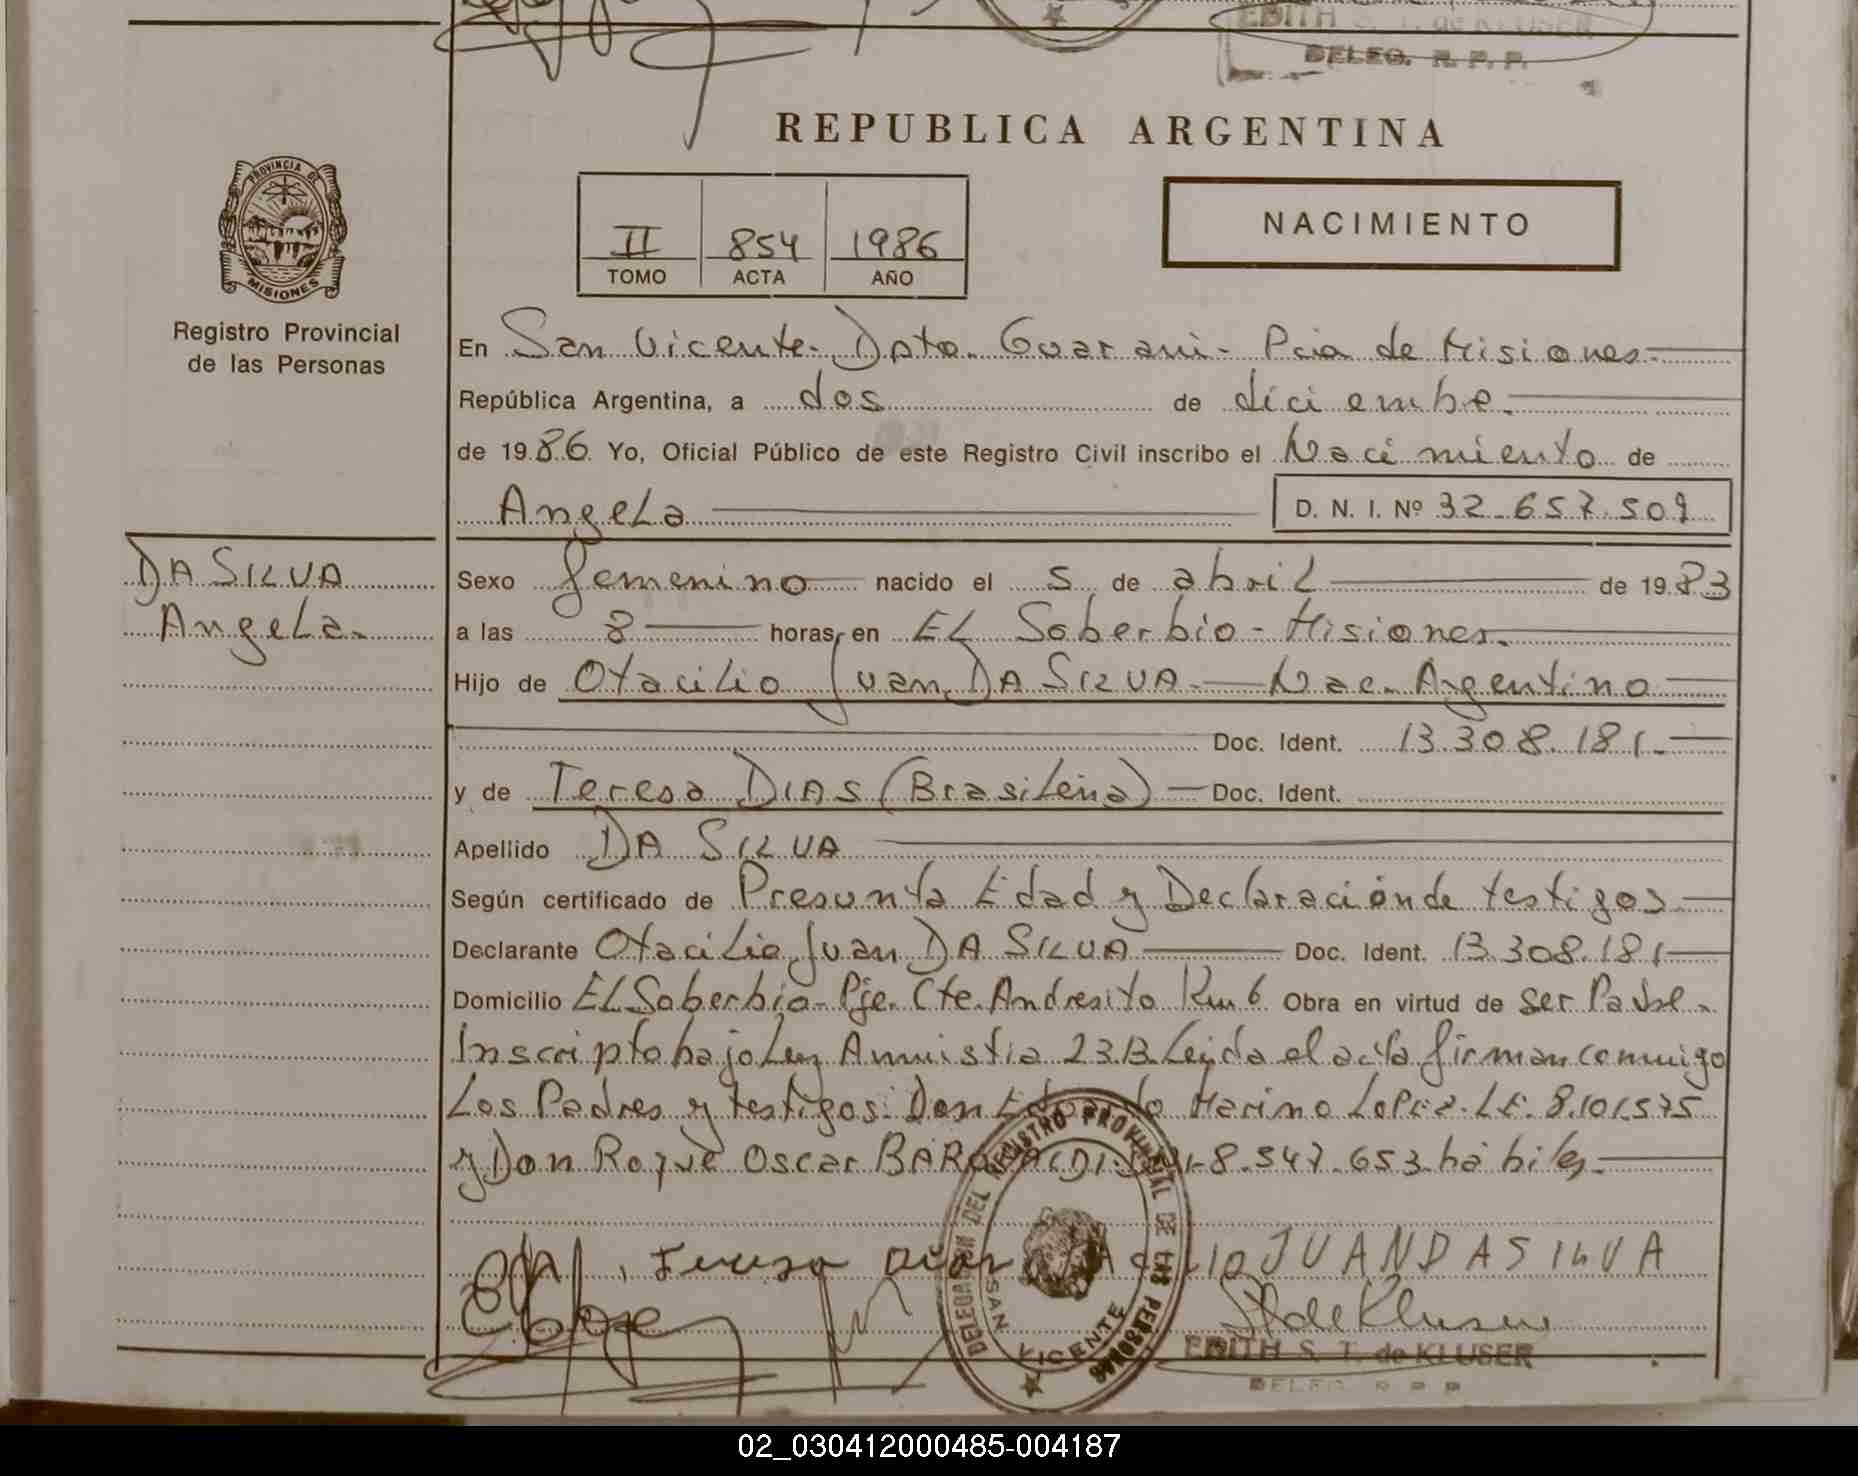 EDITH S. T. de KLUSER
DELEG. R. P. P.
REPUBLICA ARGENTINA
PROVINCIA DE
MISIONES
Registro Provincial
de las Personas
II 854 1986
TOMO ACTA AÑO
NACIMIENTO
En San Vicente- Dpto. Guarani- Pcia de Misiones.
República Argentina, a dos de diciembre.
de 1986 Yo, Oficial Público de este Registro Civil inscribo el Nacimiento de
Angela D. N. I. Nº 32.657.509
DA SILVA
Angela.
Sexo femenino nacido el 5 de abril de 1983
a las 8 horas, en EL Soberbio- Misiones.
Hijo de Otacilio Juan DA SILVA. Nac. Argentino
Doc. Ident. 13.308.181.
y de Teresa DIAS (Brasileña) Doc. Ident.
Apellido DA SILVA
Según certificado de Presunta Edad y Declaración de testigos
Declarante Otacilio Juan DA SILVA Doc. Ident. 13.308.181
Domicilio EL Soberbio- Pje. Cte. Andresito Km 6 Obra en virtud de ser Padre.
Inscripto bajo Ley Amnistia Leida el acta firman conmigo
Los Padres y testigos: Don Eduardo Marino LOPEZ. L.E. 8.101.575
y Don Roque Oscar D.N.I. 8.547.653 habiles.
Teresa Dias JUAN DA SILVA
DELEGACION DEL REGISTRO PROVINCIAL DE LAS PERSONAS
SAN VICENTE
EDITH S. T. de KLUSER
DELEG. R. P. P.
02_030412000485-004187